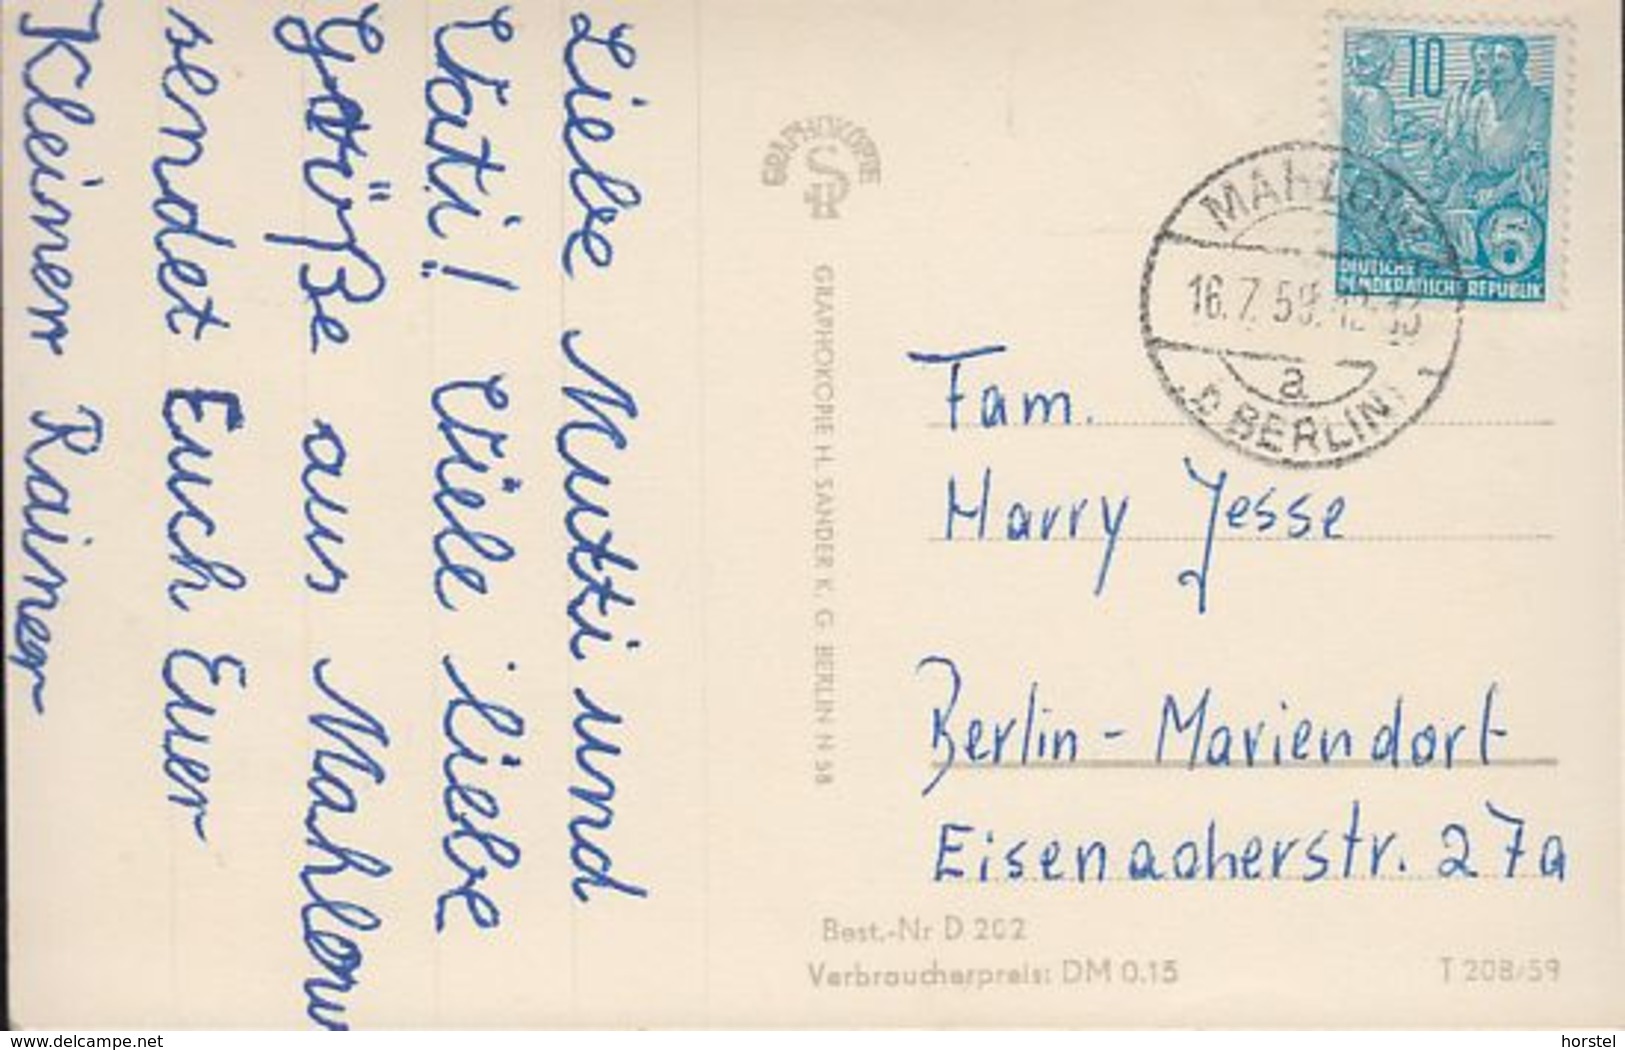 Liebe Mutti und
Vati! Viele liebe
Grüße aus Mahlow
sendet Euch Euer
Kleiner Rainer
GRAPHOKOPIE
GRAPHOKOPIE H. SANDER K. G. BERLIN N 58
10
5
DEUTSCHE
DEMOKRATISCHE REPUBLIK
MAHLOW
16.7.59.
a
b BERLIN
Fam.
Harry Jesse
Berlin-Mariendorf
Eisenacherstr. 27a
Best.-Nr D 202
Verbraucherpreis: DM 0.15
T 208/59
www.delcampe.net
horstel